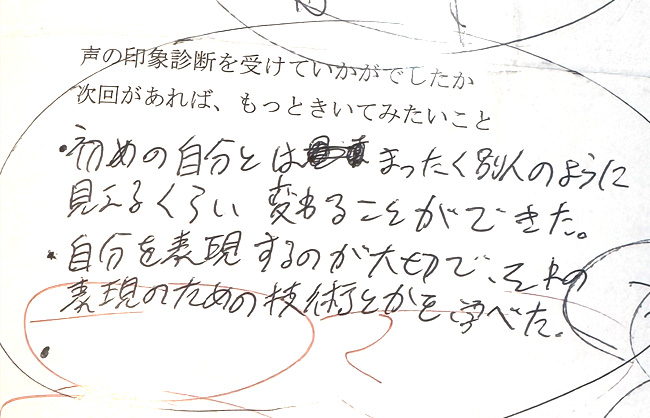 声の印象診断を受けていかがでしたか
次回があれば、もっときいてみたいこと
・初めの自分とは まったく別人のように
見えるくらい 変わることができた。
・自分を表現するのが大切で、その
表現のための技術とかを学べた。
・